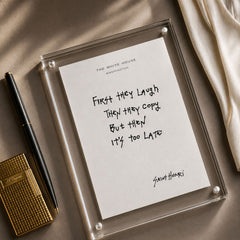 THE WHITE HOUSE
WASHINGTON
FIRST THEY LAUGH
THEN THEY COPY
BUT THEN
IT'S TOO LATE